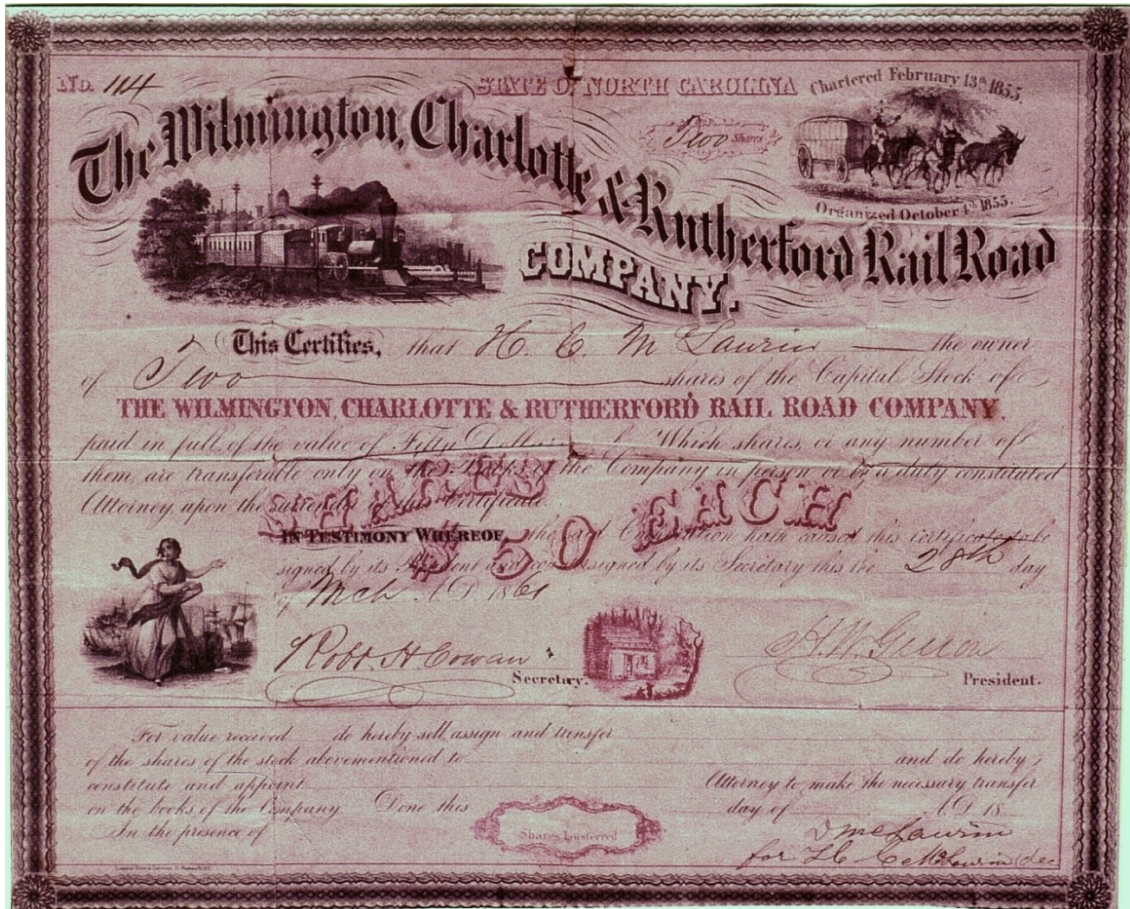 No. 114
STATE OF NORTH CAROLINA
Chartered February 13th 1855.
Two Shares
Organized October 1st 1855.
The Wilmington, Charlotte & Rutherford Rail Road
COMPANY.
This Certifies, that H. C. McLaurin the owner
of Two shares of the Capital Stock of
THE WILMINGTON, CHARLOTTE & RUTHERFORD RAIL ROAD COMPANY.
paid in full, of the value of Fifty Dollars Which shares, or any number of
them, are transferable only on the Books of the Company in person or by a duly constituted
Attorney, upon the surrender of this Certificate.
SHARES
$50 EACH
IN TESTIMONY WHEREOF, the said Corporation hath caused this certificate to be
signed by its President and countersigned by its Secretary this the 28th day
of Mch A.D. 1861
Robt. H Cowan
Secretary.
President.
For value received do hereby sell, assign and transfer
of the shares of the stock abovementioned to and do hereby
constitute and appoint Attorney to make the necessary transfer
on the books of the Company. Done this day of A.D. 18
In the presence of
Shares
D McLaurin
for H C McLaurin